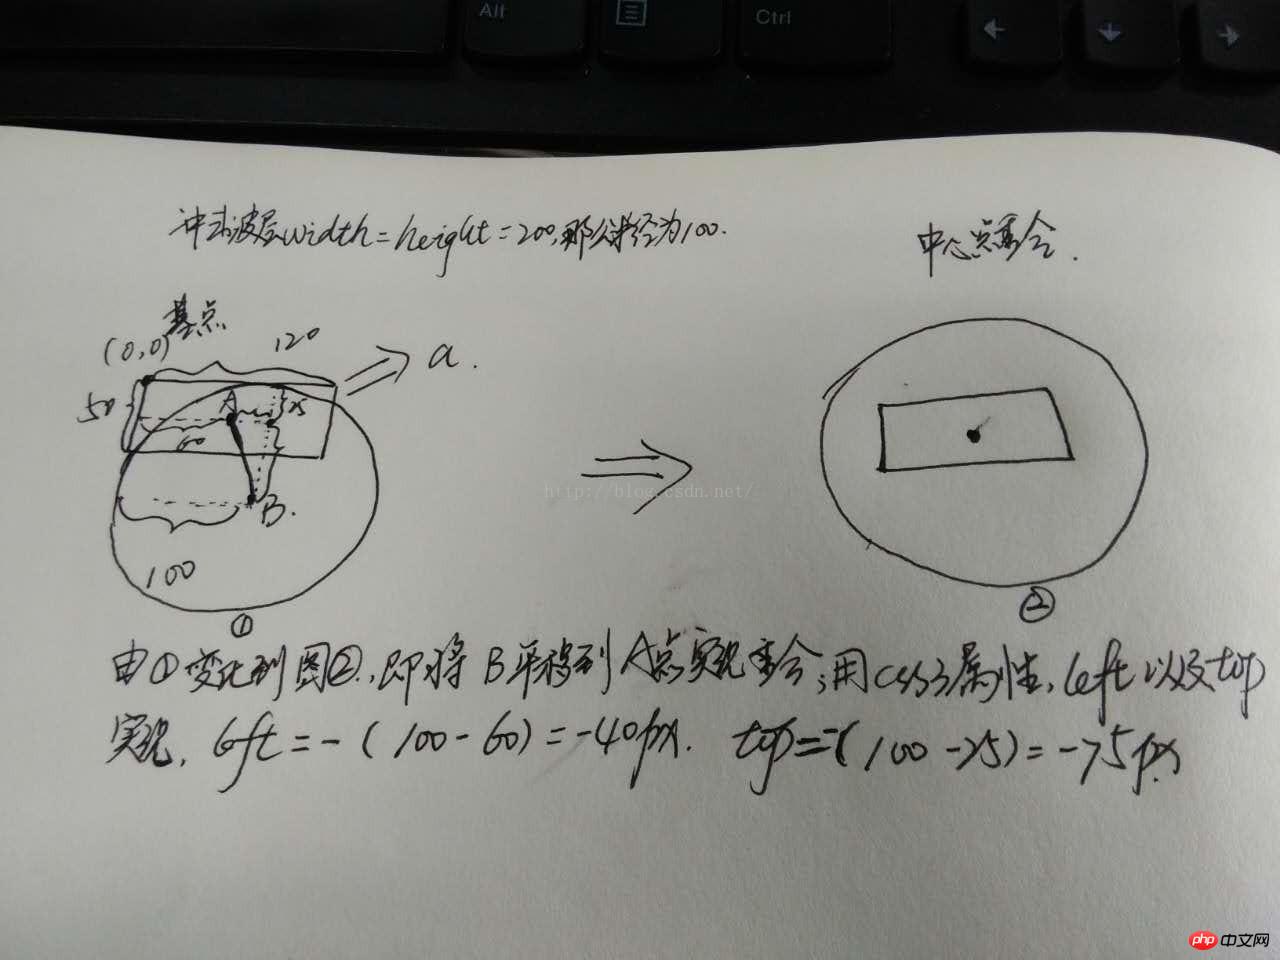 Alt
Ctrl
冲击波层width=height=200,那么半径为100.
中心点重合.
基点
(0,0)
120
a.
50
A
25
60
B.
100
http://blog.csdn.net/
①
②
由①变化到图②,即将B平移到A点实现重合;用css3属性,left以及top
实现, left=-(100-60)=-40px. top=-(100-25)=-75px
php中文网